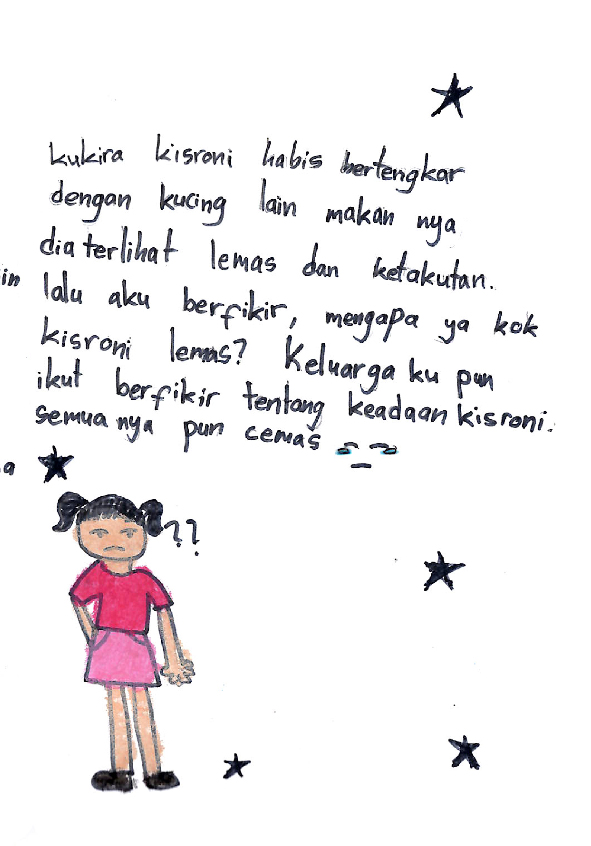 kukira kisroni habis bertengkar
dengan kucing lain makan nya
dia terlihat lemas dan ketakutan.
in lalu aku berfikir, mengapa ya kok
kisroni lemas? Keluarga ku pun
ikut berfikir tentang keadaan kisroni.
semua nya pun cemas
a
??